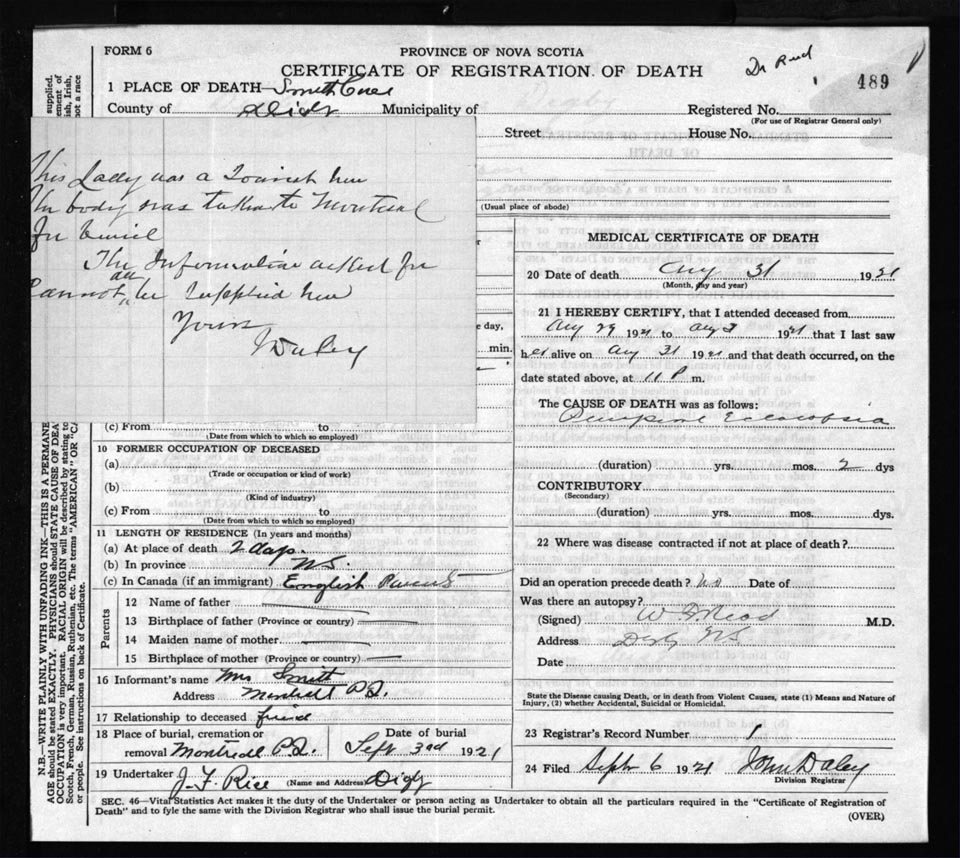 FORM 6
PROVINCE OF NOVA SCOTIA
CERTIFICATE OF REGISTRATION OF DEATH
Dr Read
489
1 PLACE OF DEATH— Smiths Cove
County of Digby Municipality of Digby Registered No.
(For use of Registrar General only)
Street House No.
This Lady was a Tourist here
The body was taken to Montreal
for burial
The Information asked for
all
Cannot be supplied here
Yours
J Daley
(Usual place of abode)
MEDICAL CERTIFICATE OF DEATH
20 Date of death Aug 31 1921
(Month, day and year)
21 I HEREBY CERTIFY, that I attended deceased from
Aug 29 1921 to Aug 31 1921 that I last saw
her alive on Aug 31 1921 and that death occurred, on the
date stated above, at 11 P m.
The CAUSE OF DEATH was as follows:
(duration) yrs. mos. 2 dys
CONTRIBUTORY
(Secondary)
(duration) yrs. mos. dys.
22 Where was disease contracted if not at place of death?
Did an operation precede death? No Date of
Was there an autopsy?
(Signed) M.D.
Address Digby NS
Date
State the Disease causing Death, or in death from Violent Causes, state (1) Means and Nature of
Injury, (2) whether Accidental, Suicidal or Homicidal.
23 Registrar's Record Number 1
24 Filed Sept 6 1921 John Daley
Division Registrar
e day,
min.
(c) From to
(Date from which to which so employed)
10 FORMER OCCUPATION OF DECEASED
(a)
(Trade or occupation or kind of work)
(b)
(Kind of industry)
(c) From to
(Date from which to which so employed)
11 LENGTH OF RESIDENCE (In years and months)
(a) At place of death 2 days.
(b) In province NS
(c) In Canada (if an immigrant) English Parents
Parents
12 Name of father
13 Birthplace of father (Province or country)
14 Maiden name of mother
15 Birthplace of mother (Province or country)
16 Informant's name Mrs Smith
Address Montreal P.Q.
17 Relationship to deceased friend
18 Place of burial, cremation or Date of burial
removal Montreal P.Q. Sept 3rd 1921
19 Undertaker J. F. Rice (Name and Address) Digby
SEC. 46—Vital Statistics Act makes it the duty of the Undertaker or person acting as Undertaker to obtain all the particulars required in the "Certificate of Registration of
Death" and to fyle the same with the Division Registrar who shall issue the burial permit.
(OVER)
N.B.—WRITE PLAINLY WITH UNFADING INK—THIS IS A PERMANE
AGE should be stated EXACTLY. PHYSICIANS should STATE CAUSE OF DEA supplied.
OCCUPATION is very important. RACIAL ORIGIN will be described by stating to ement of
Scotch, French, German, Russian, Ruthenian, etc. The terms "AMERICAN" OR "CA ish, Irish,
or people. See instructions on back of Certificate. not a race